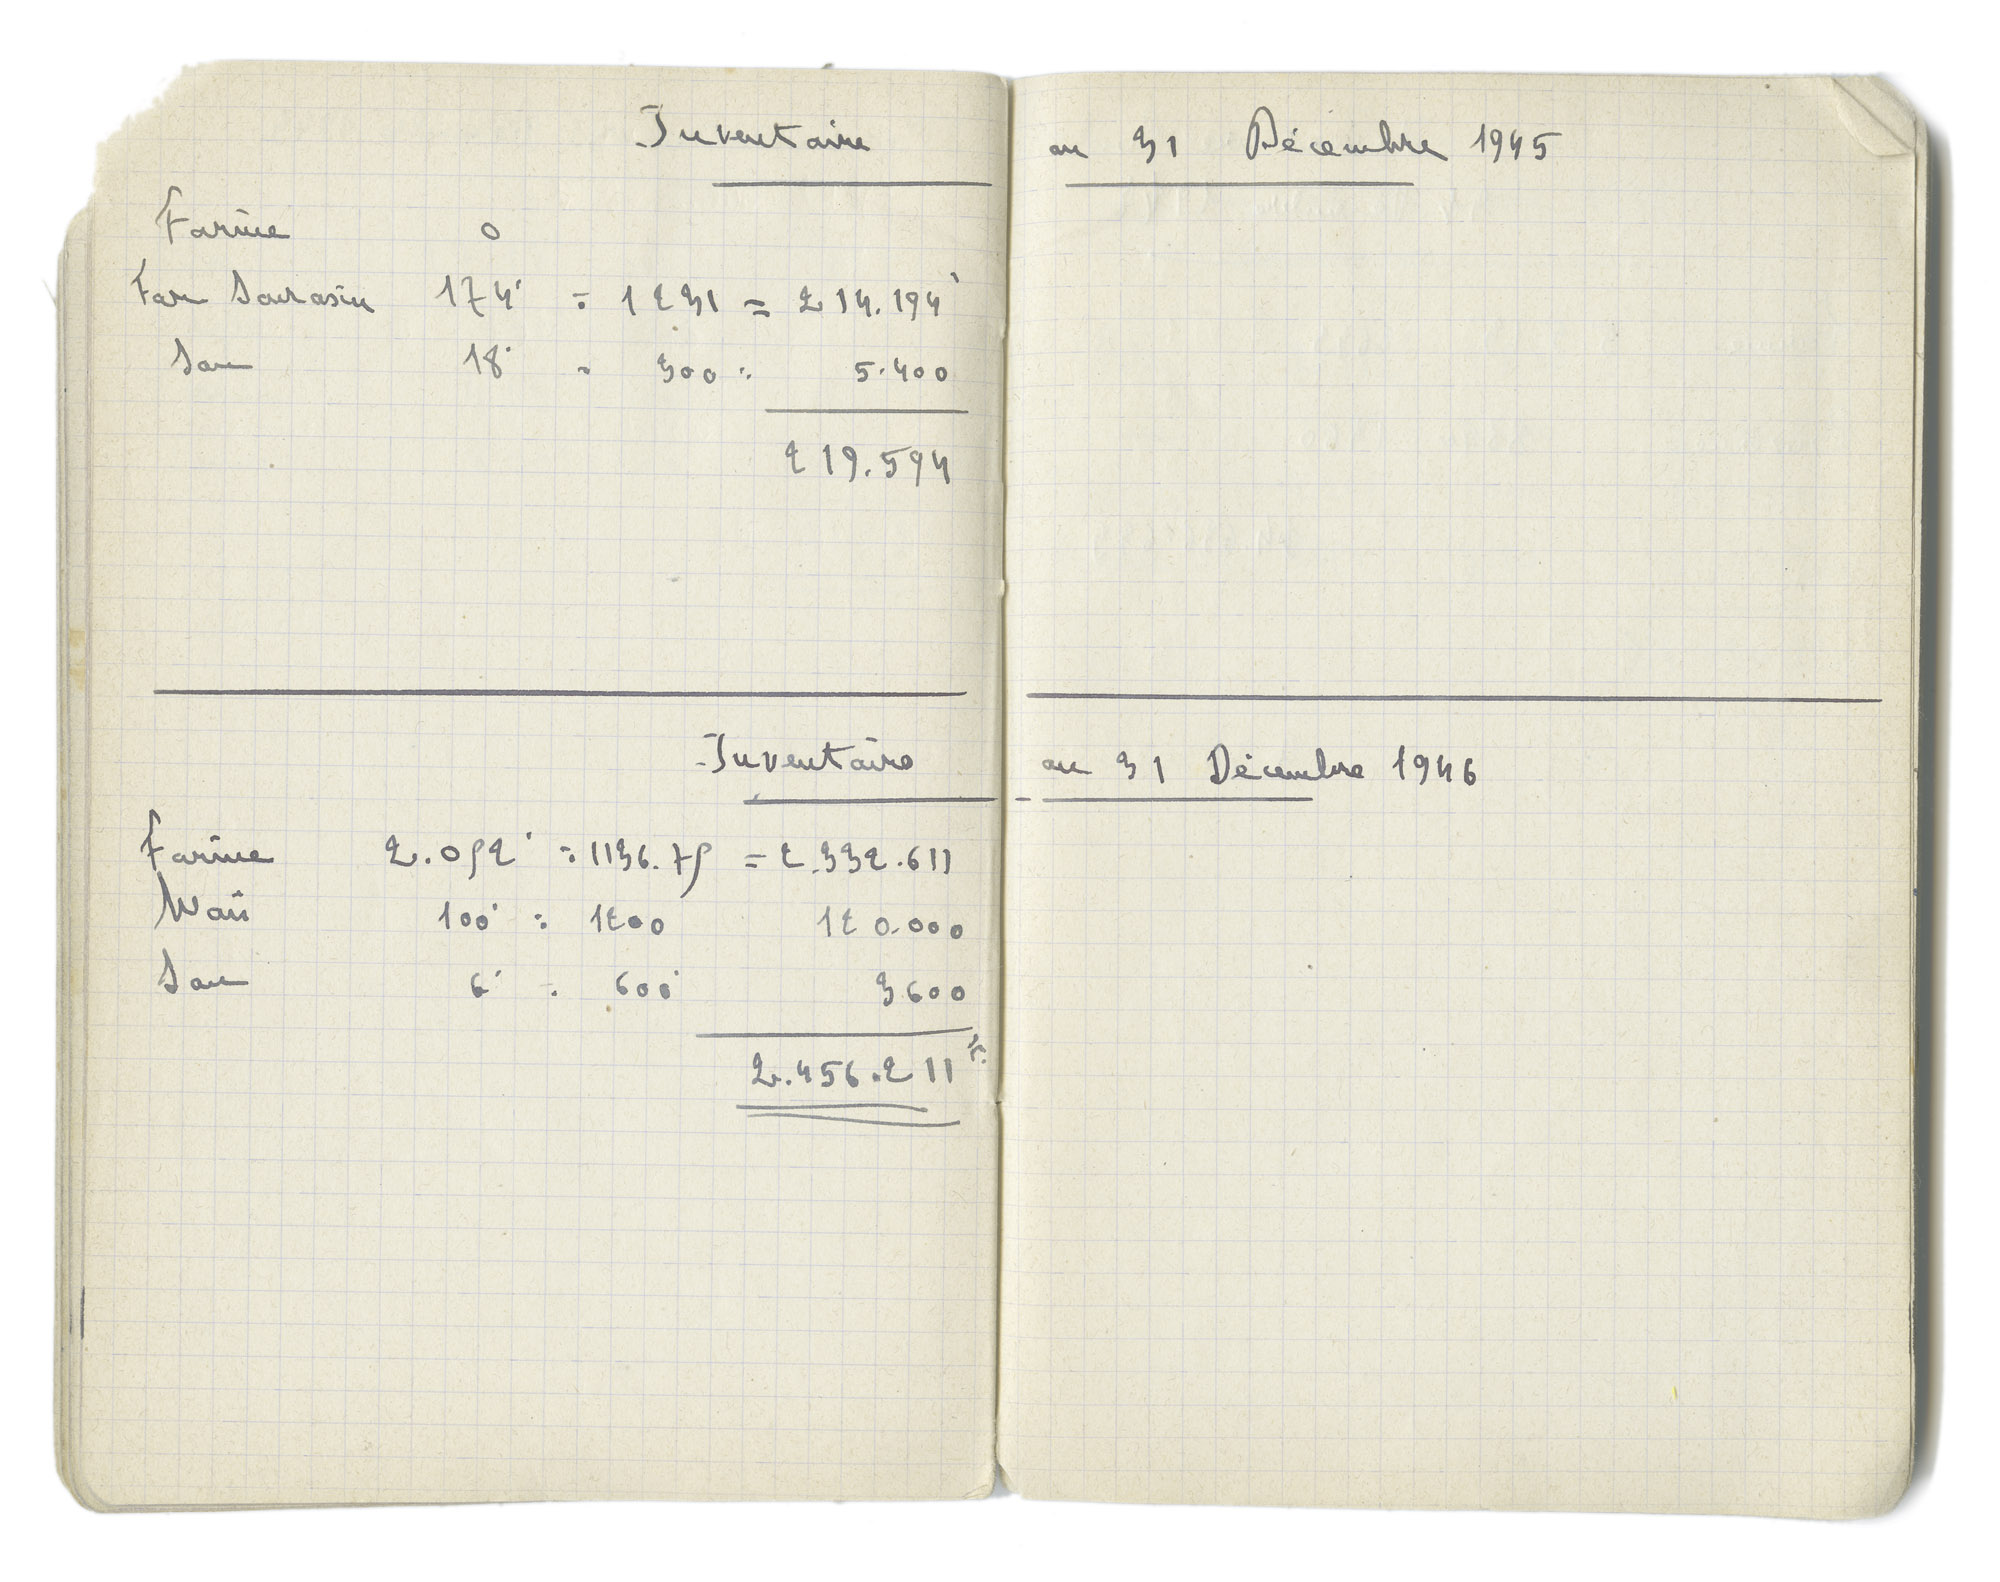 Inventaire au 31 Décembre 1945
Farine 0
Far Sarrasin 174' = 1231 = 214.194
Son 18' = 300 = 5.400
219.594
Inventaire au 31 Décembre 1946
Farine 2.052' = 1136.75 = 2.332.611
Maïs 100' = 1200 120.000
Son 6' = 600 3600
2.456.211 F.